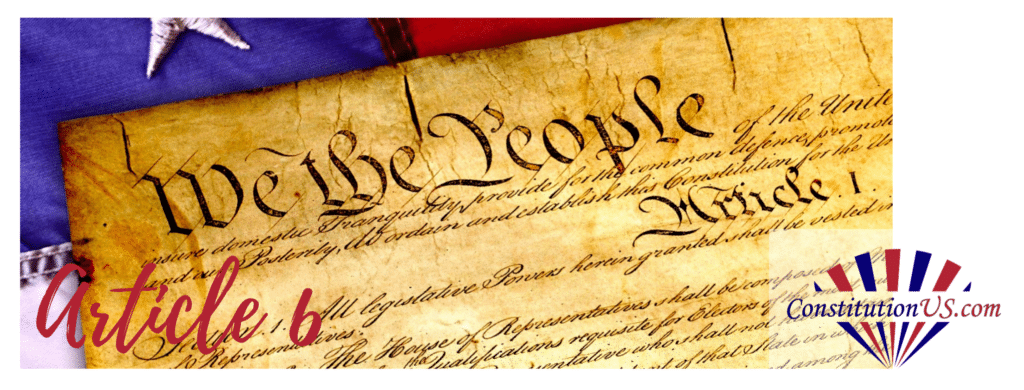 We the People
of the Unite
insure domestic Tranquility, provide for the common defence, promote
and our Posterity, do ordain and establish this Constitution for the Un
Article. I.
All legislative Powers herein granted shall be vested in
Representatives.
The House of Representatives shall be composed of
Qualifications requisite for Electors of the most
who shall not
of that State in
Article 6
ConstitutionUS.com